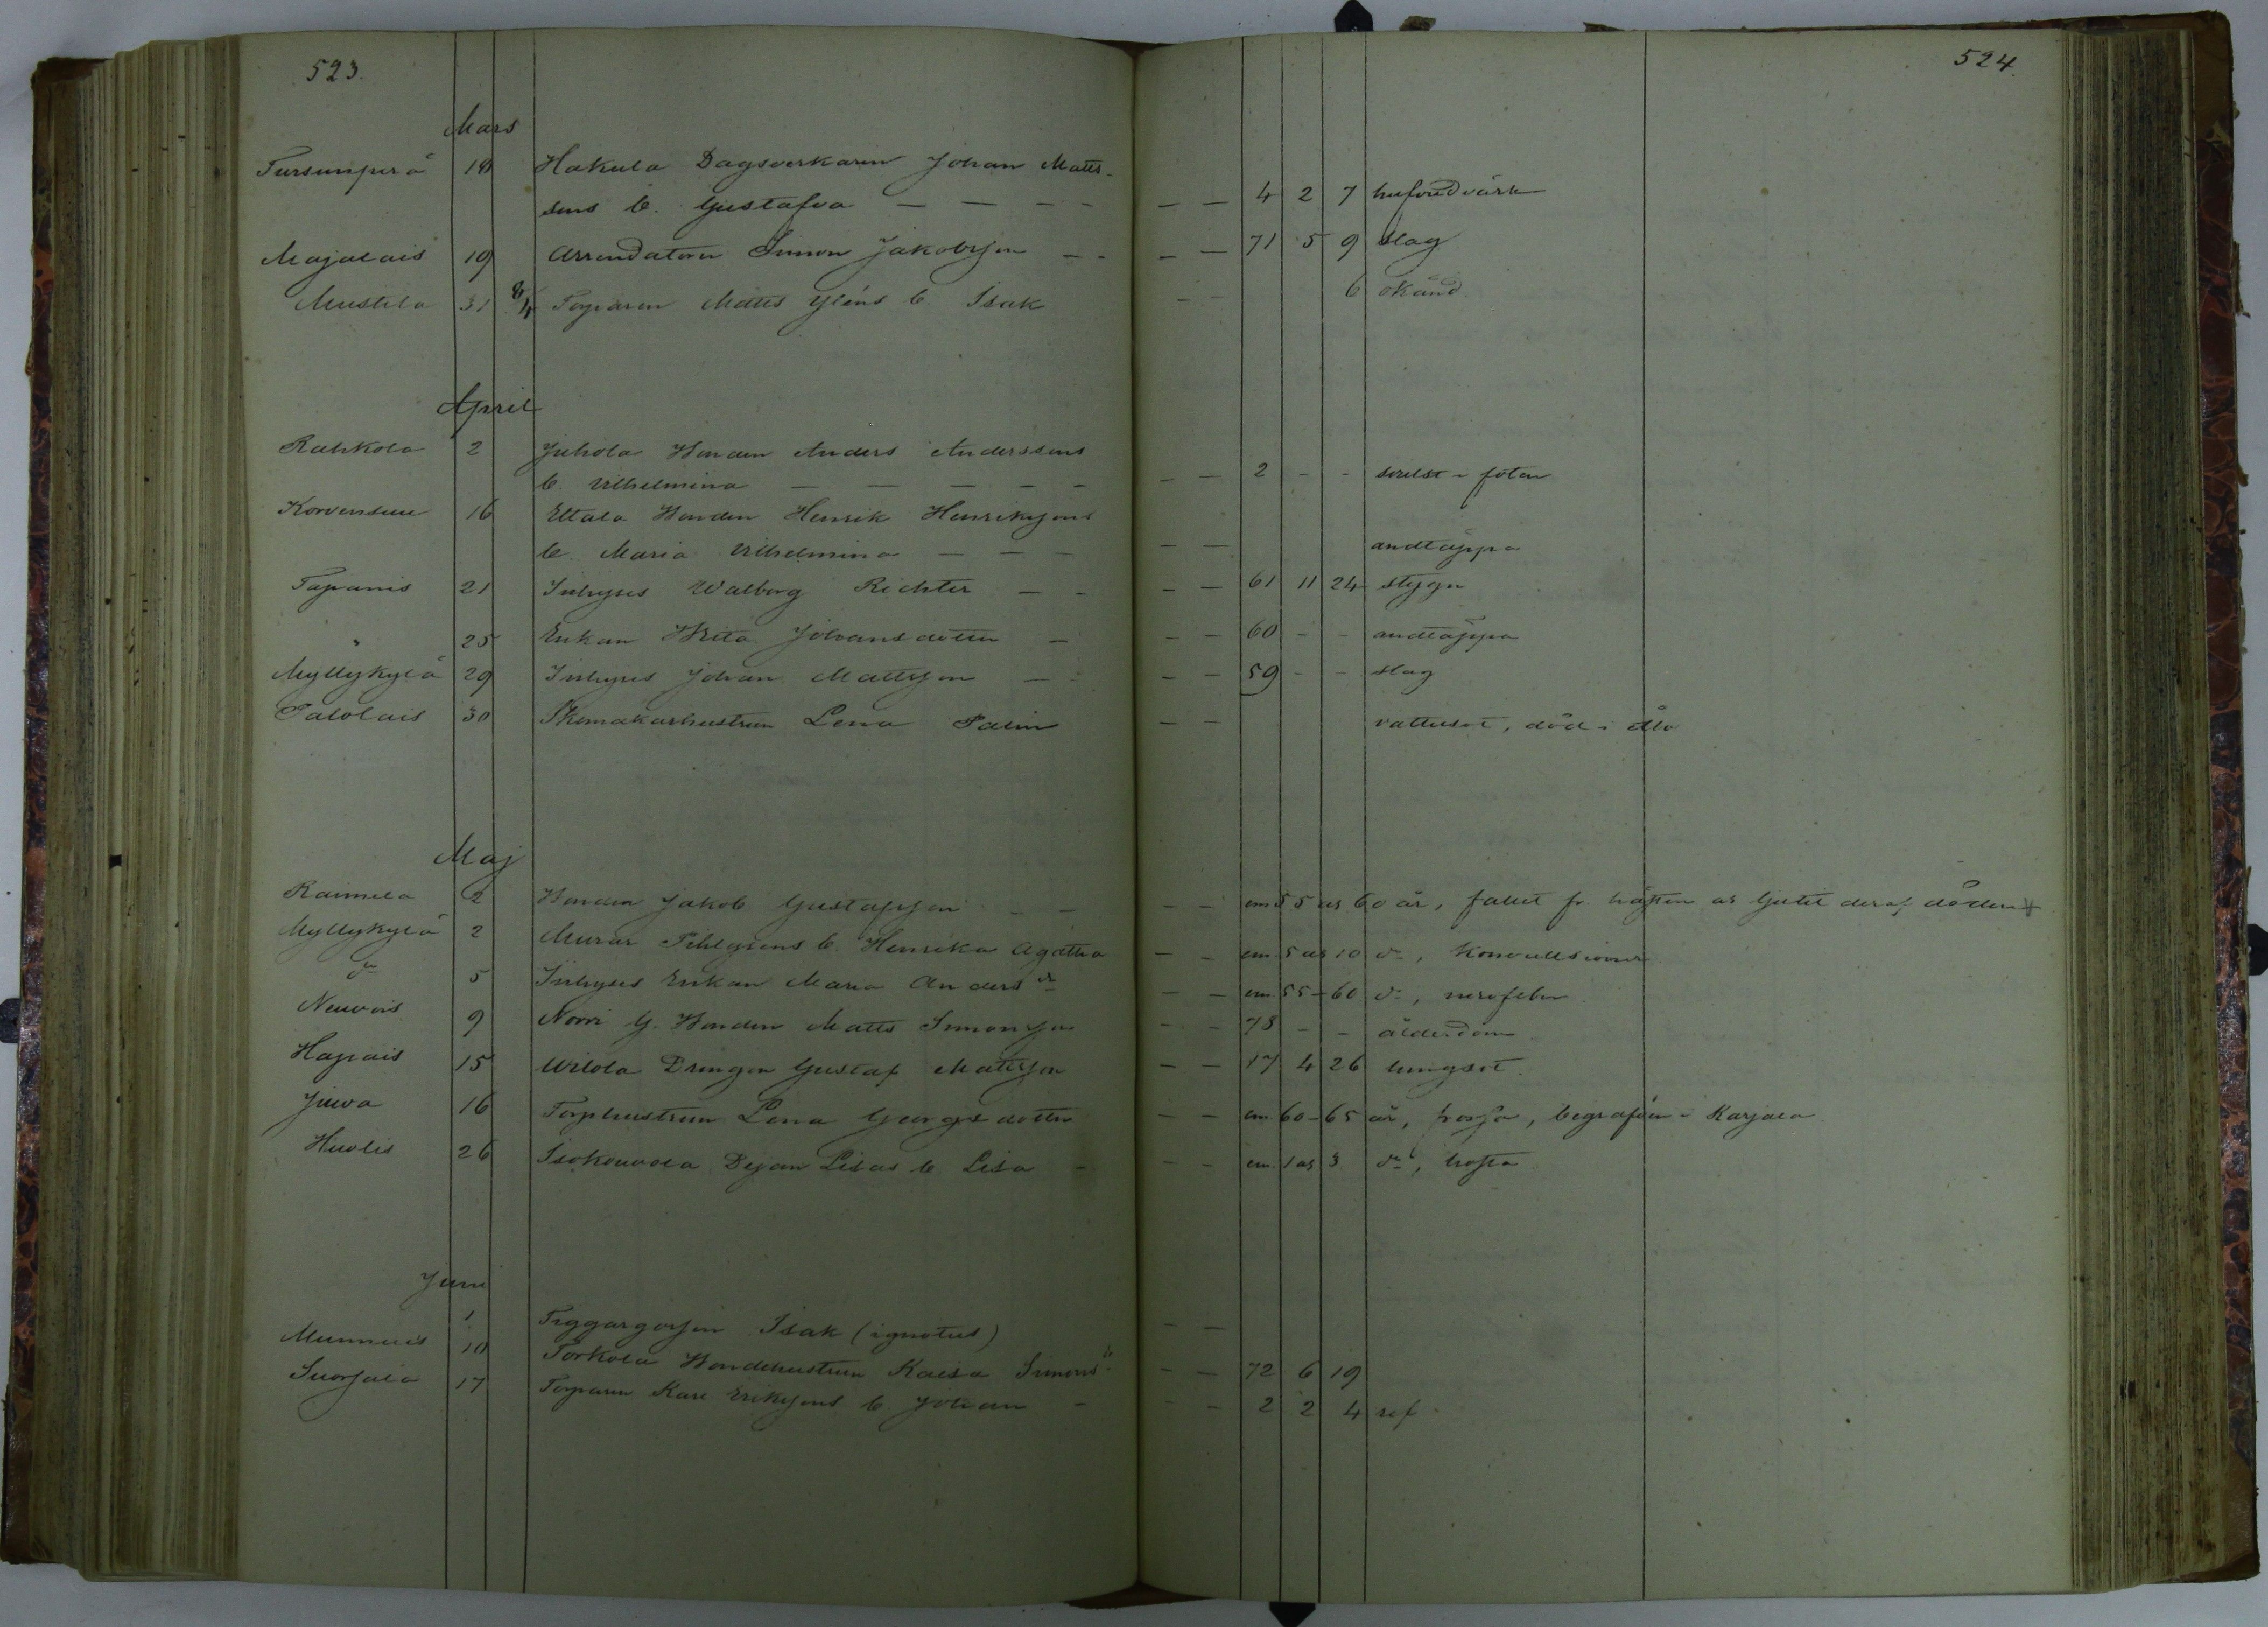 523.
524.
Mars
Tursunperä 18 Hakula Dagsverkaren Johan Matts-
sons b. Gustafva — — — — — — 4 2 7 hufvudvärk
Majalais 19 Arrendatorn Simon Jakobsson — — — — 71 5 9 slag
Mustila 31 Torparen Matts Yléns b. Isak — — 6 okänd
April
Rahkola 2 Juhola Bonden Anders Anderssons
b. Vilhelmina — — — — — — — 2 - - svulst i foten
Korvensuu 16 Eltala Bonden Henrik Henrikssons
b. Maria Vilhelmina — — — — — andtäppa
Tapanis 21 Inhyses Walborg Richter — — — — 61 11 24 stygn
" 25 Enkan Brita Johansdotter — — — 60 - - andtäppa
Myllykylä 29 Inhyses Johan Mattsson — — — — 59 - - slag
Palolais 30 Skomakarhustrun Lena Palin — — vattusot, död i Åbo
Maj
Raimela 2 Bonden Jakob Gustafsson — — — — em 55 as 60 år, fallit fr. hästen as ljutit deraf döden +
Myllykylä 2 Murar Pihlgrens b. Henrika Agatha — — em. 5 as 10 d:o, Konvulsioner
d:o 5 Inhyses Enkan Maria Anders d:r — — em 55-60 d:o, nervfeber
Neuvois 9 Norri G. Bonden Matts Simonsson — — 78 - - ålderdom
Hapais 15 Uotola Drengen Gustaf Mattsson — — 17 4 26 lungsot.
Juva 16 Torphustrun Lena Georgsdotter — — em. 60-65 år, hosta, begrafven i Karjala
Huolis 26 Isokouvola Dejan Lisas b. Lisa — — — em. 1 as 3 d:o, hosta
Juni
1 Tiggargossen Isak (ignotus) — —
Munnuis 10 Torkola Bondehustrun Kaisa Simons d:r — — 72 6 19
Suorsala 17 Torparen Karl Erikssons b. Johan — — — 2 2 4 ref